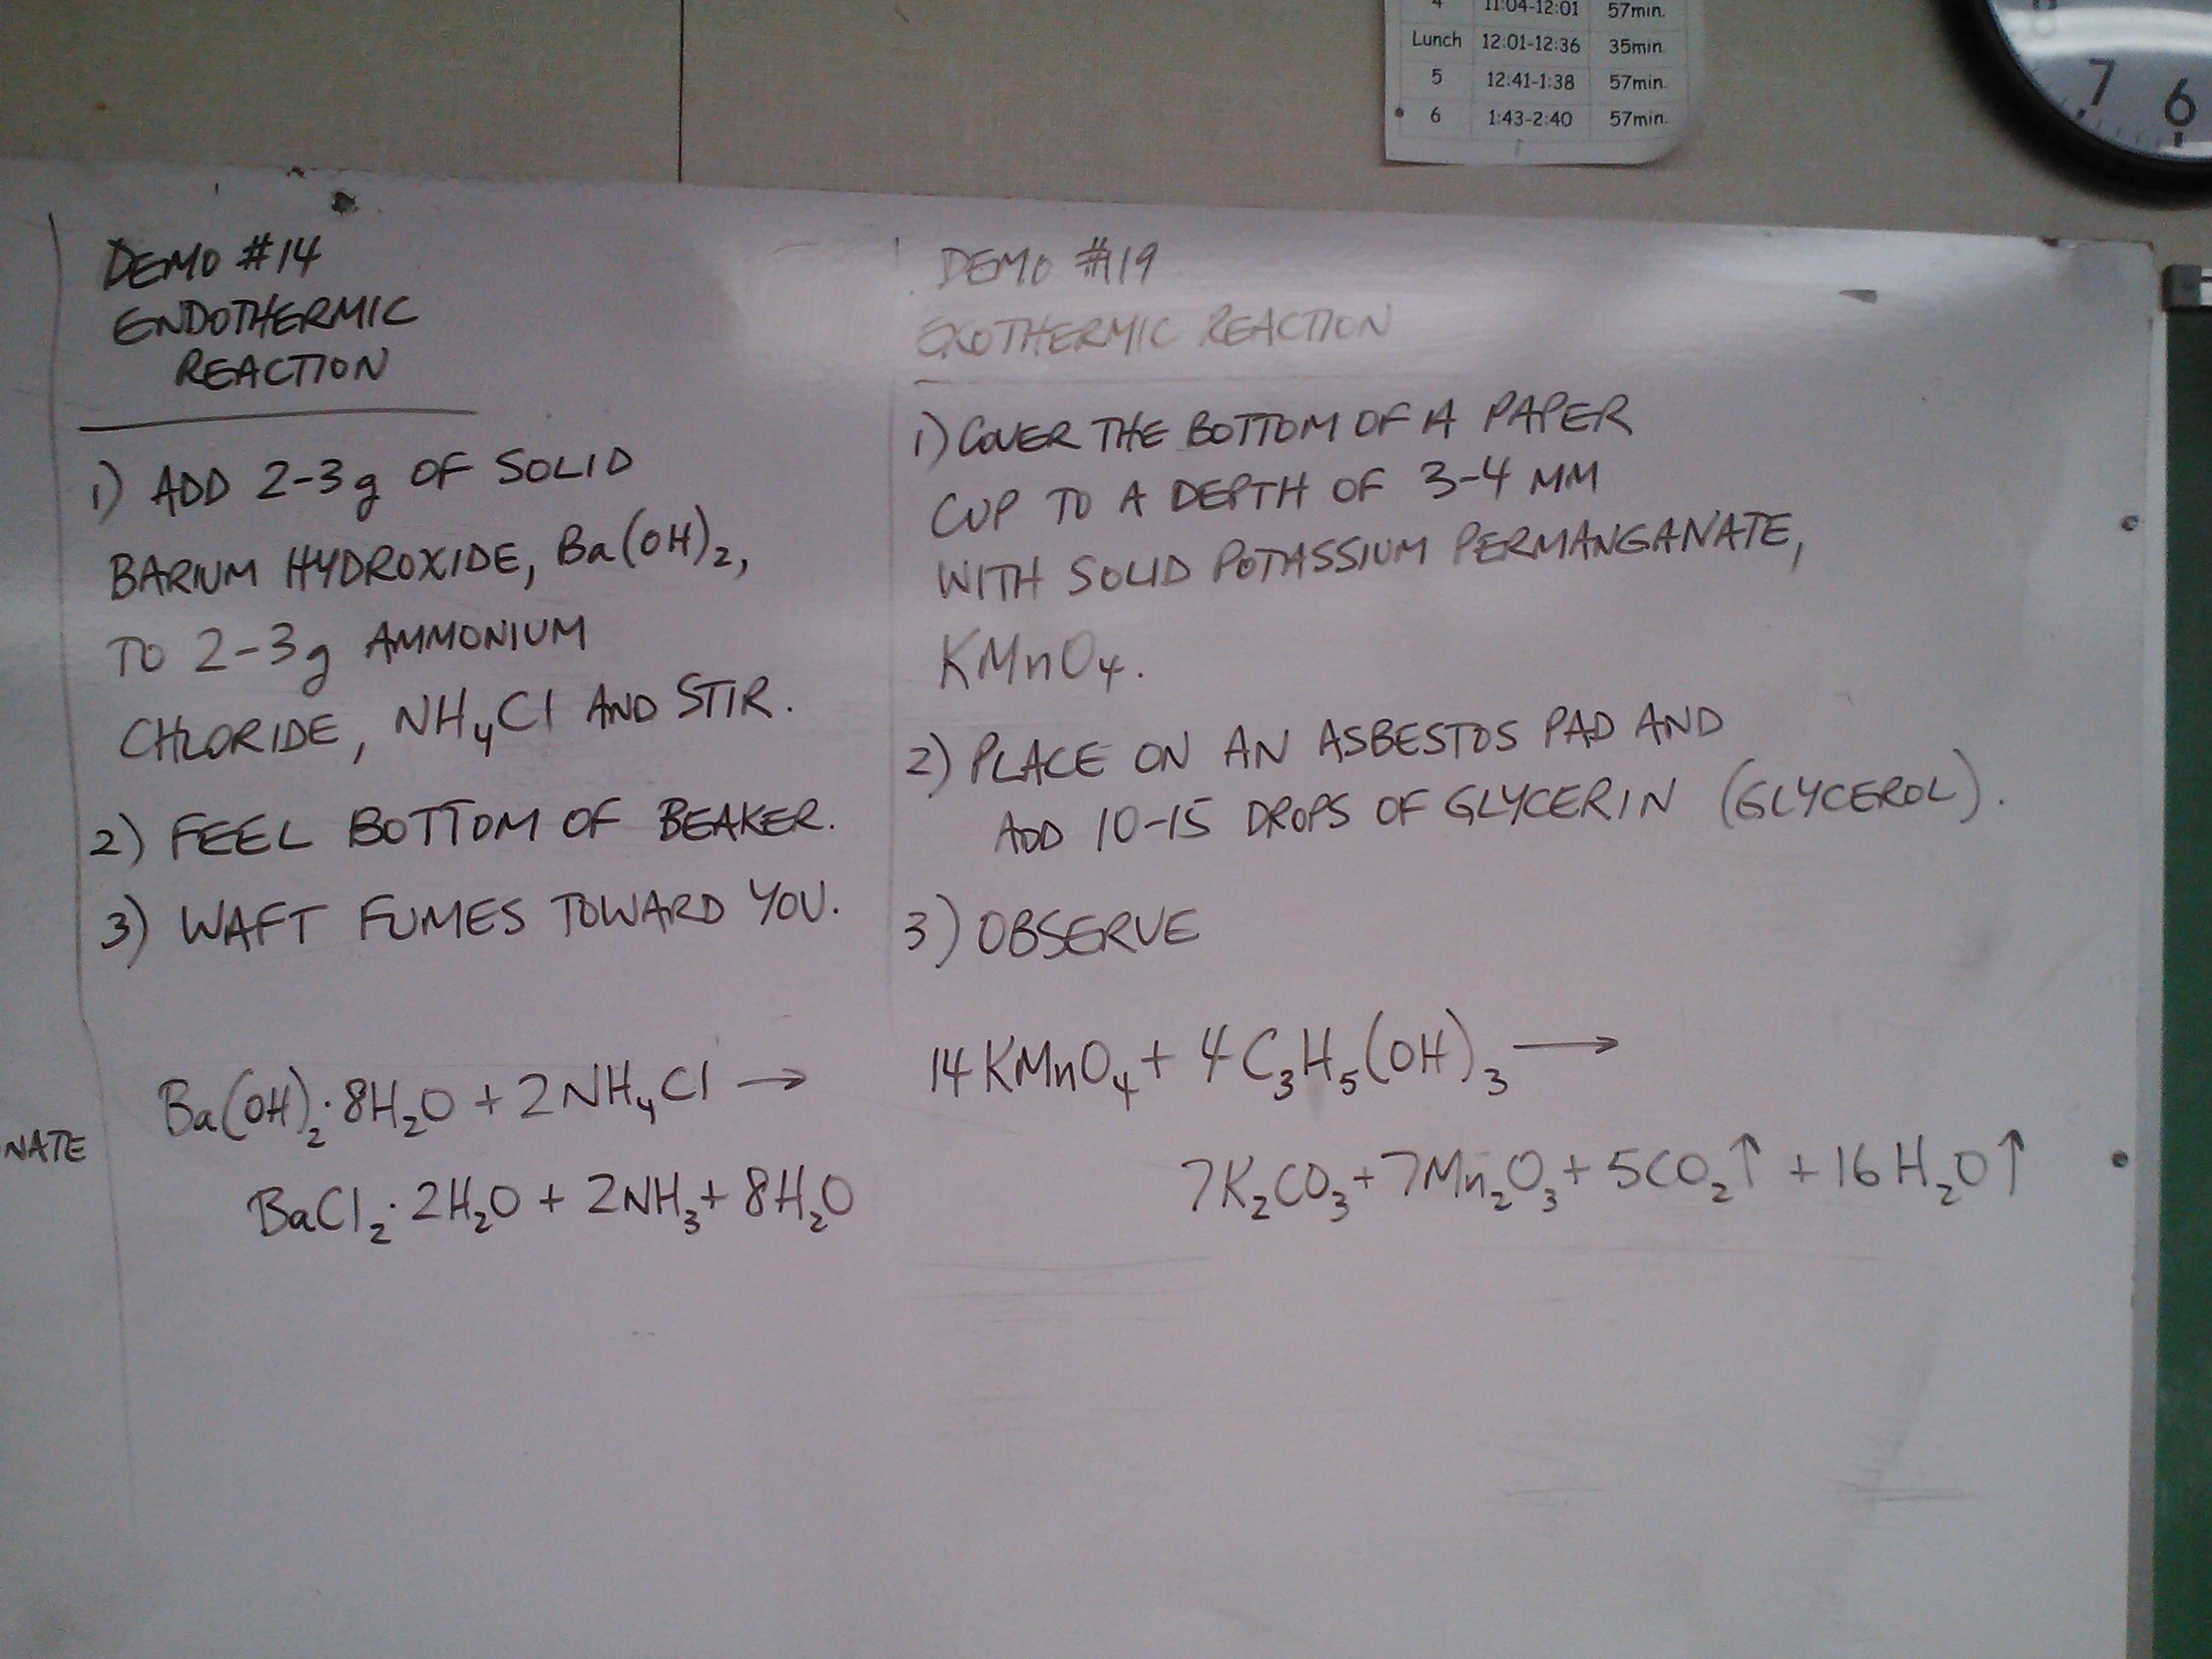 4 11:04-12:01 57min.
Lunch 12:01-12:36 35min.
5 12:41-1:38 57min.
6 1:43-2:40 57min.
7 6
DEMO #14
ENDOTHERMIC
REACTION
1) ADD 2-3g OF SOLID
BARIUM HYDROXIDE, Ba(OH)₂,
TO 2-3g AMMONIUM
CHLORIDE, NH₄Cl AND STIR.
2) FEEL BOTTOM OF BEAKER.
3) WAFT FUMES TOWARD YOU.
Ba(OH)₂·8H₂O + 2NH₄Cl →
BaCl₂·2H₂O + 2NH₃ + 8H₂O
NATE
DEMO #19
EXOTHERMIC REACTION
1) COVER THE BOTTOM OF A PAPER
CUP TO A DEPTH OF 3-4 MM
WITH SOLID POTASSIUM PERMANGANATE,
KMnO₄.
2) PLACE ON AN ASBESTOS PAD AND
ADD 10-15 DROPS OF GLYCERIN (GLYCEROL).
3) OBSERVE
14KMnO₄ + 4C₃H₅(OH)₃ →
7K₂CO₃ + 7Mn₂O₃ + 5CO₂↑ + 16H₂O↑